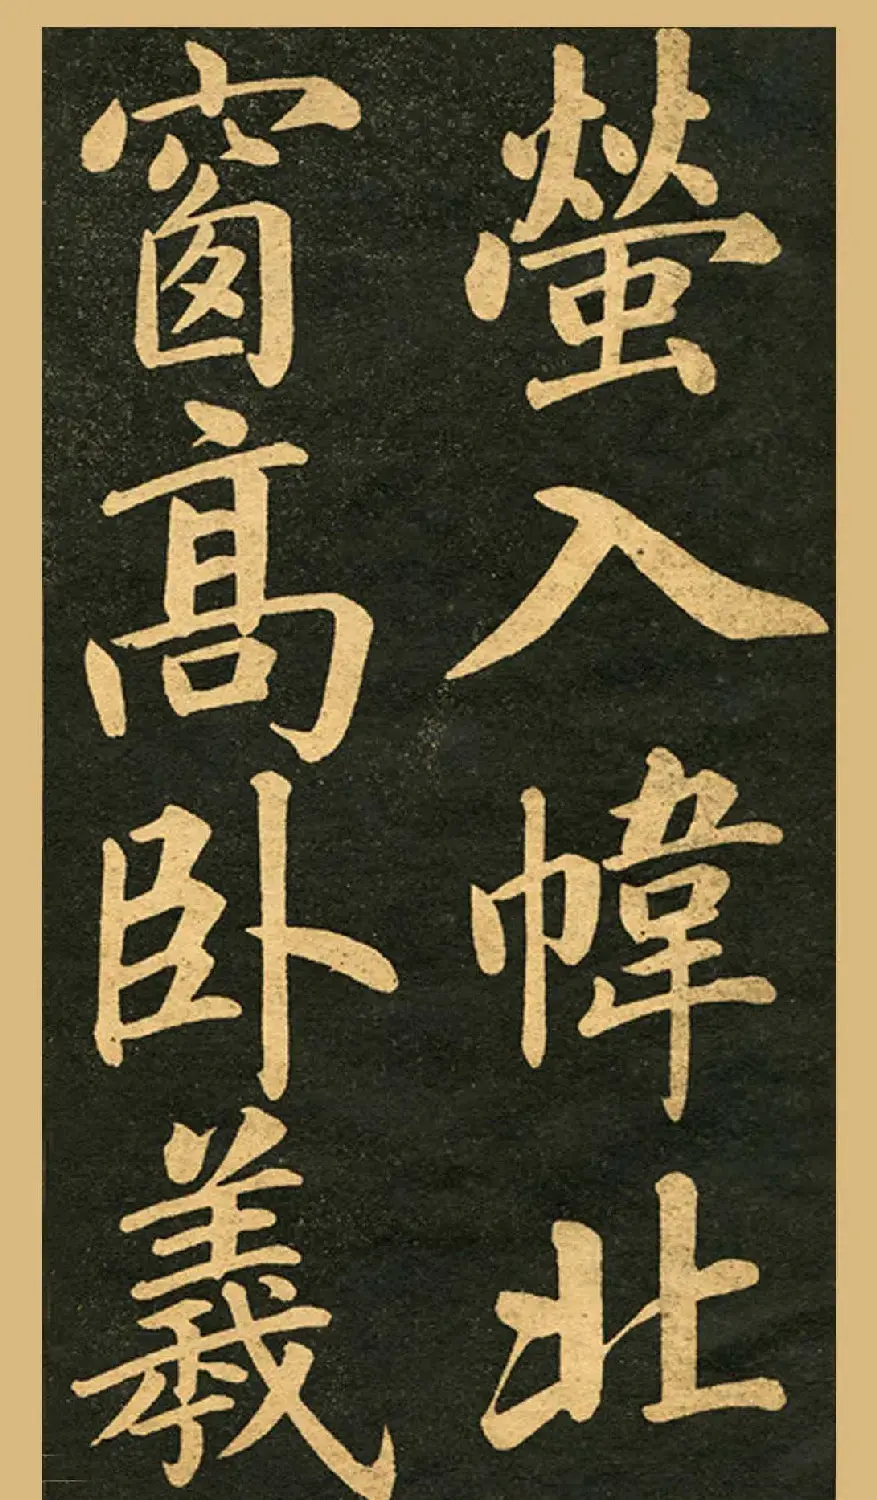 螢入幃北
窗高卧羲